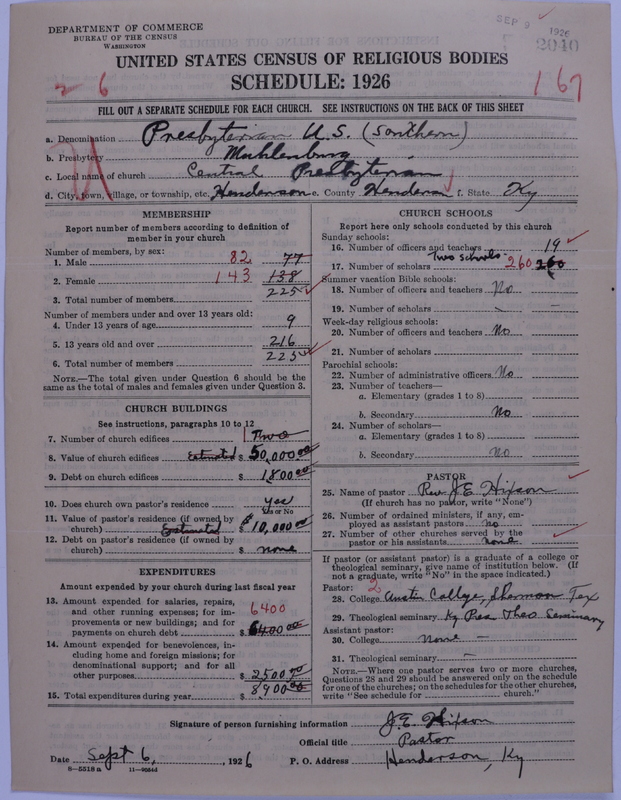 DEPARTMENT OF COMMERCE
BUREAU OF THE CENSUS
WASHINGTON
SEP 9 1926
2040
UNITED STATES CENSUS OF RELIGIOUS BODIES
SCHEDULE: 1926
2 6
167
FILL OUT A SEPARATE SCHEDULE FOR EACH CHURCH. SEE INSTRUCTIONS ON THE BACK OF THIS SHEET
a. Denomination Presbyterian U.S. (Southern)
b. Presbytery Muhlenburg
c. Local name of church Central Presbyterian
d. City, town, village, or township, etc. Henderson e. County Henderson f. State Ky
MEMBERSHIP
Report number of members according to definition of member in your church
Number of members, by sex:
1. Male 82 77
2. Female 143 138
3. Total number of members 225
Number of members under and over 13 years old:
4. Under 13 years of age 9
5. 13 years old and over 216
6. Total number of members 225
NOTE.—The total given under Question 6 should be the same as the total of males and females given under Question 3.
CHURCH BUILDINGS
See instructions, paragraphs 10 to 12
7. Number of church edifices 1 Two
8. Value of church edifices Estimated $ 50,000.00
9. Debt on church edifices $ 1800.00
10. Does church own pastor's residence yes
Yes or No
11. Value of pastor's residence (if owned by church) Estimated $ 10,000.00
12. Debt on pastor's residence (if owned by church) $ none
EXPENDITURES
Amount expended by your church during last fiscal year
13. Amount expended for salaries, repairs, and other running expenses; for improvements or new buildings; and for payments on church debt $ 6400 6400.00
14. Amount expended for benevolences, including home and foreign missions; for denominational support; and for all other purposes $ 2500.00
15. Total expenditures during year $ 8900.00
CHURCH SCHOOLS
Report here only schools conducted by this church
Sunday schools:
16. Number of officers and teachers 19
Two schools
17. Number of scholars 260 260
Summer vacation Bible schools:
18. Number of officers and teachers No
19. Number of scholars –
Week-day religious schools:
20. Number of officers and teachers No
21. Number of scholars –
Parochial schools:
22. Number of administrative officers No
23. Number of teachers—
a. Elementary (grades 1 to 8)
b. Secondary No
24. Number of scholars—
a. Elementary (grades 1 to 8)
b. Secondary No
PASTOR
25. Name of pastor Rev. J.E. Hixson
(If church has no pastor, write "None")
26. Number of ordained ministers, if any, employed as assistant pastors no
27. Number of other churches served by the pastor or his assistants none
If pastor (or assistant pastor) is a graduate of a college or theological seminary, give name of institution below. (If not a graduate, write "No" in the space indicated.)
Pastor: 2
28. College Austin College, Sherman Tex
29. Theological seminary Ky Pres. Theo Seminary
Assistant pastor:
30. College none –
31. Theological seminary –
NOTE.—Where one pastor serves two or more churches, Questions 28 and 29 should be answered only on the schedule for one of the churches; on the schedules for the other churches, write "See schedule for church."
Signature of person furnishing information J.E. Hixson
Official title Pastor
Date Sept 6, 1926 P. O. Address Henderson, Ky
8—5518 a